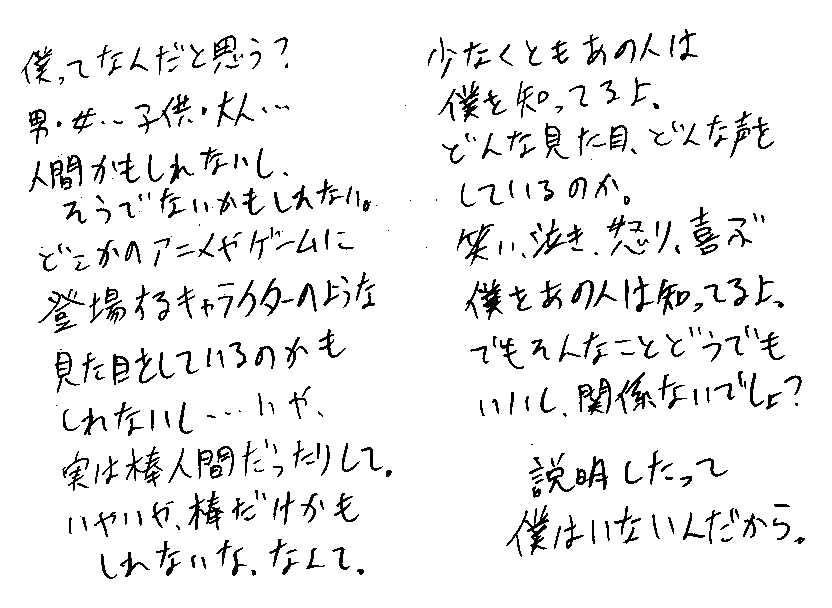 僕ってなんだと思う?
男・女…子供・大人…
人間かもしれないし、
そうでないかもしれない。
どこかのアニメやゲームに
登場するキャラクターのような
見た目をしているのかも
しれないし……いや、
実は棒人間だったりして。
いやいや、棒だけかも
しれないな、なんて。
少なくともあの人は
僕を知ってるよ。
どんな見た目、どんな声を
しているのか。
笑い、泣き、怒り、喜ぶ
僕をあの人は知ってるよ。
でもそんなことどうでも
いいし、関係ないでしょ?
説明したって
僕はいないんだから。